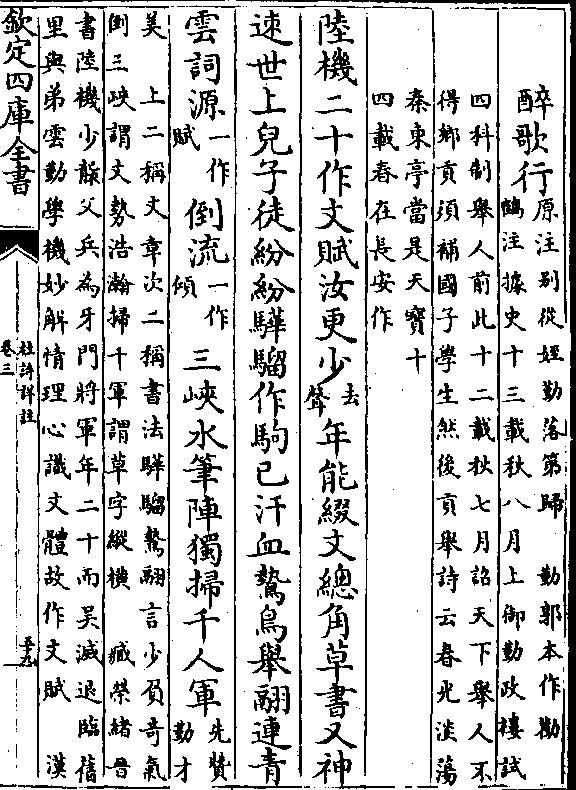 醉歌行
原注别從姪勤落第歸　勤郭本作勸
鶴注據史十三載秋八月上御勤政樓試
四科制舉人前此十二載秋七月詔天下舉人不
得鄉貢須補國子學生然後貢舉詩云春光淡蕩
秦東亭當是天寶十
四載春在長安作
陸機二十作文賦汝更少去聲年能綴文總角草書又神
速世上兒子徒紛紛驊騮作駒已汗血鷙鳥舉翮連青
雲詞源一作賦倒流一作傾三峽水筆陣獨掃千人軍先贊勤才
美　上二稱文章次二稱書法驊騮鷙翮言少負奇氣
倒三峽謂文勢浩瀚掃千軍謂草字縱横　臧榮緒晉
書陸機少襲父兵為牙門將軍年二十而吳滅退臨舊
里與弟雲勤學機妙解情理心識文體故作文賦　漢
欽定四庫全書
杜詩詳註
卷三